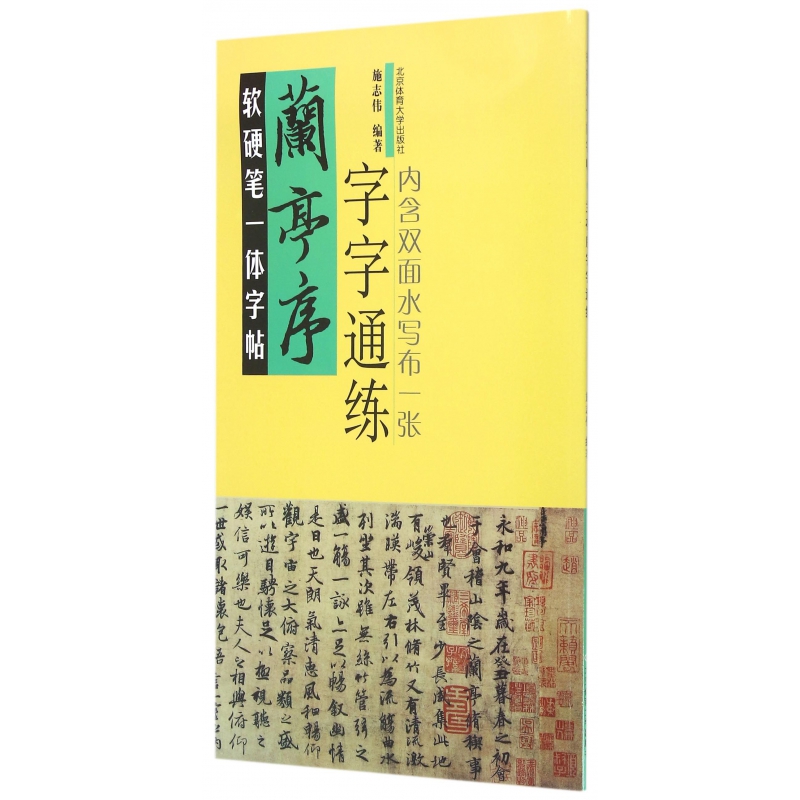 北京体育大学出版社
施志伟 编著
内含双面水写布一张
字字通练
蘭亭序
软硬笔一体字帖
永和九年歲在癸丑暮春之初會
于會稽山陰之蘭亭脩稧事
也羣賢畢至少長咸集此地
有崇山峻領茂林脩竹又有清流激
湍暎帶左右引以為流觴曲水
列坐其次雖無絲竹管弦之
盛一觴一詠亦足以暢叙幽情
是日也天朗氣清惠風和暢仰
觀宇宙之大俯察品類之盛
所以遊目騁懷足以極視聽之
娛信可樂也夫人之相與俯仰
一世或取諸懷抱悟言一室之內